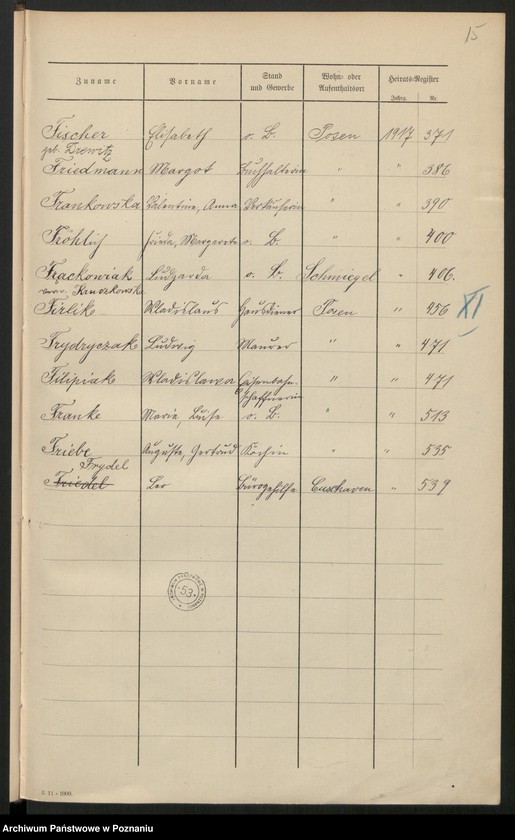 15
Zuname Vorname Stand und Gewerbe Wohn- oder Aufenthaltsort Heirats-Register
Jahrg. Nr.
Fischer Elisabeth o. B. Posen 1917 371
gb. Drewitz
Friedmann Margot Buchhalterin " " 386
Frankowska Valentine, Anna Verkäuferin " " 390
Fröhlich Frieda, Margarete o. B. " " 400
Frackowiak Ludgarda o. B. Schmiegel " 406.
Kruszkowska
Firlik Wladislaus Hausdiener Posen " 456 XI
Frydryczak Ludwig Maurer " " 471
Filipiak Wladislawa Eisenbahn- " " 471
schaffnerin
Franke Maria, Luise o. B. " " 513
Friebe Auguste, Gertrud Köchin " 535
Frydel
Friedel Leo Bürogehilfe Cuxhaven " 539
53
S. 11 - 1909.
Archiwum Państwowe w Poznaniu